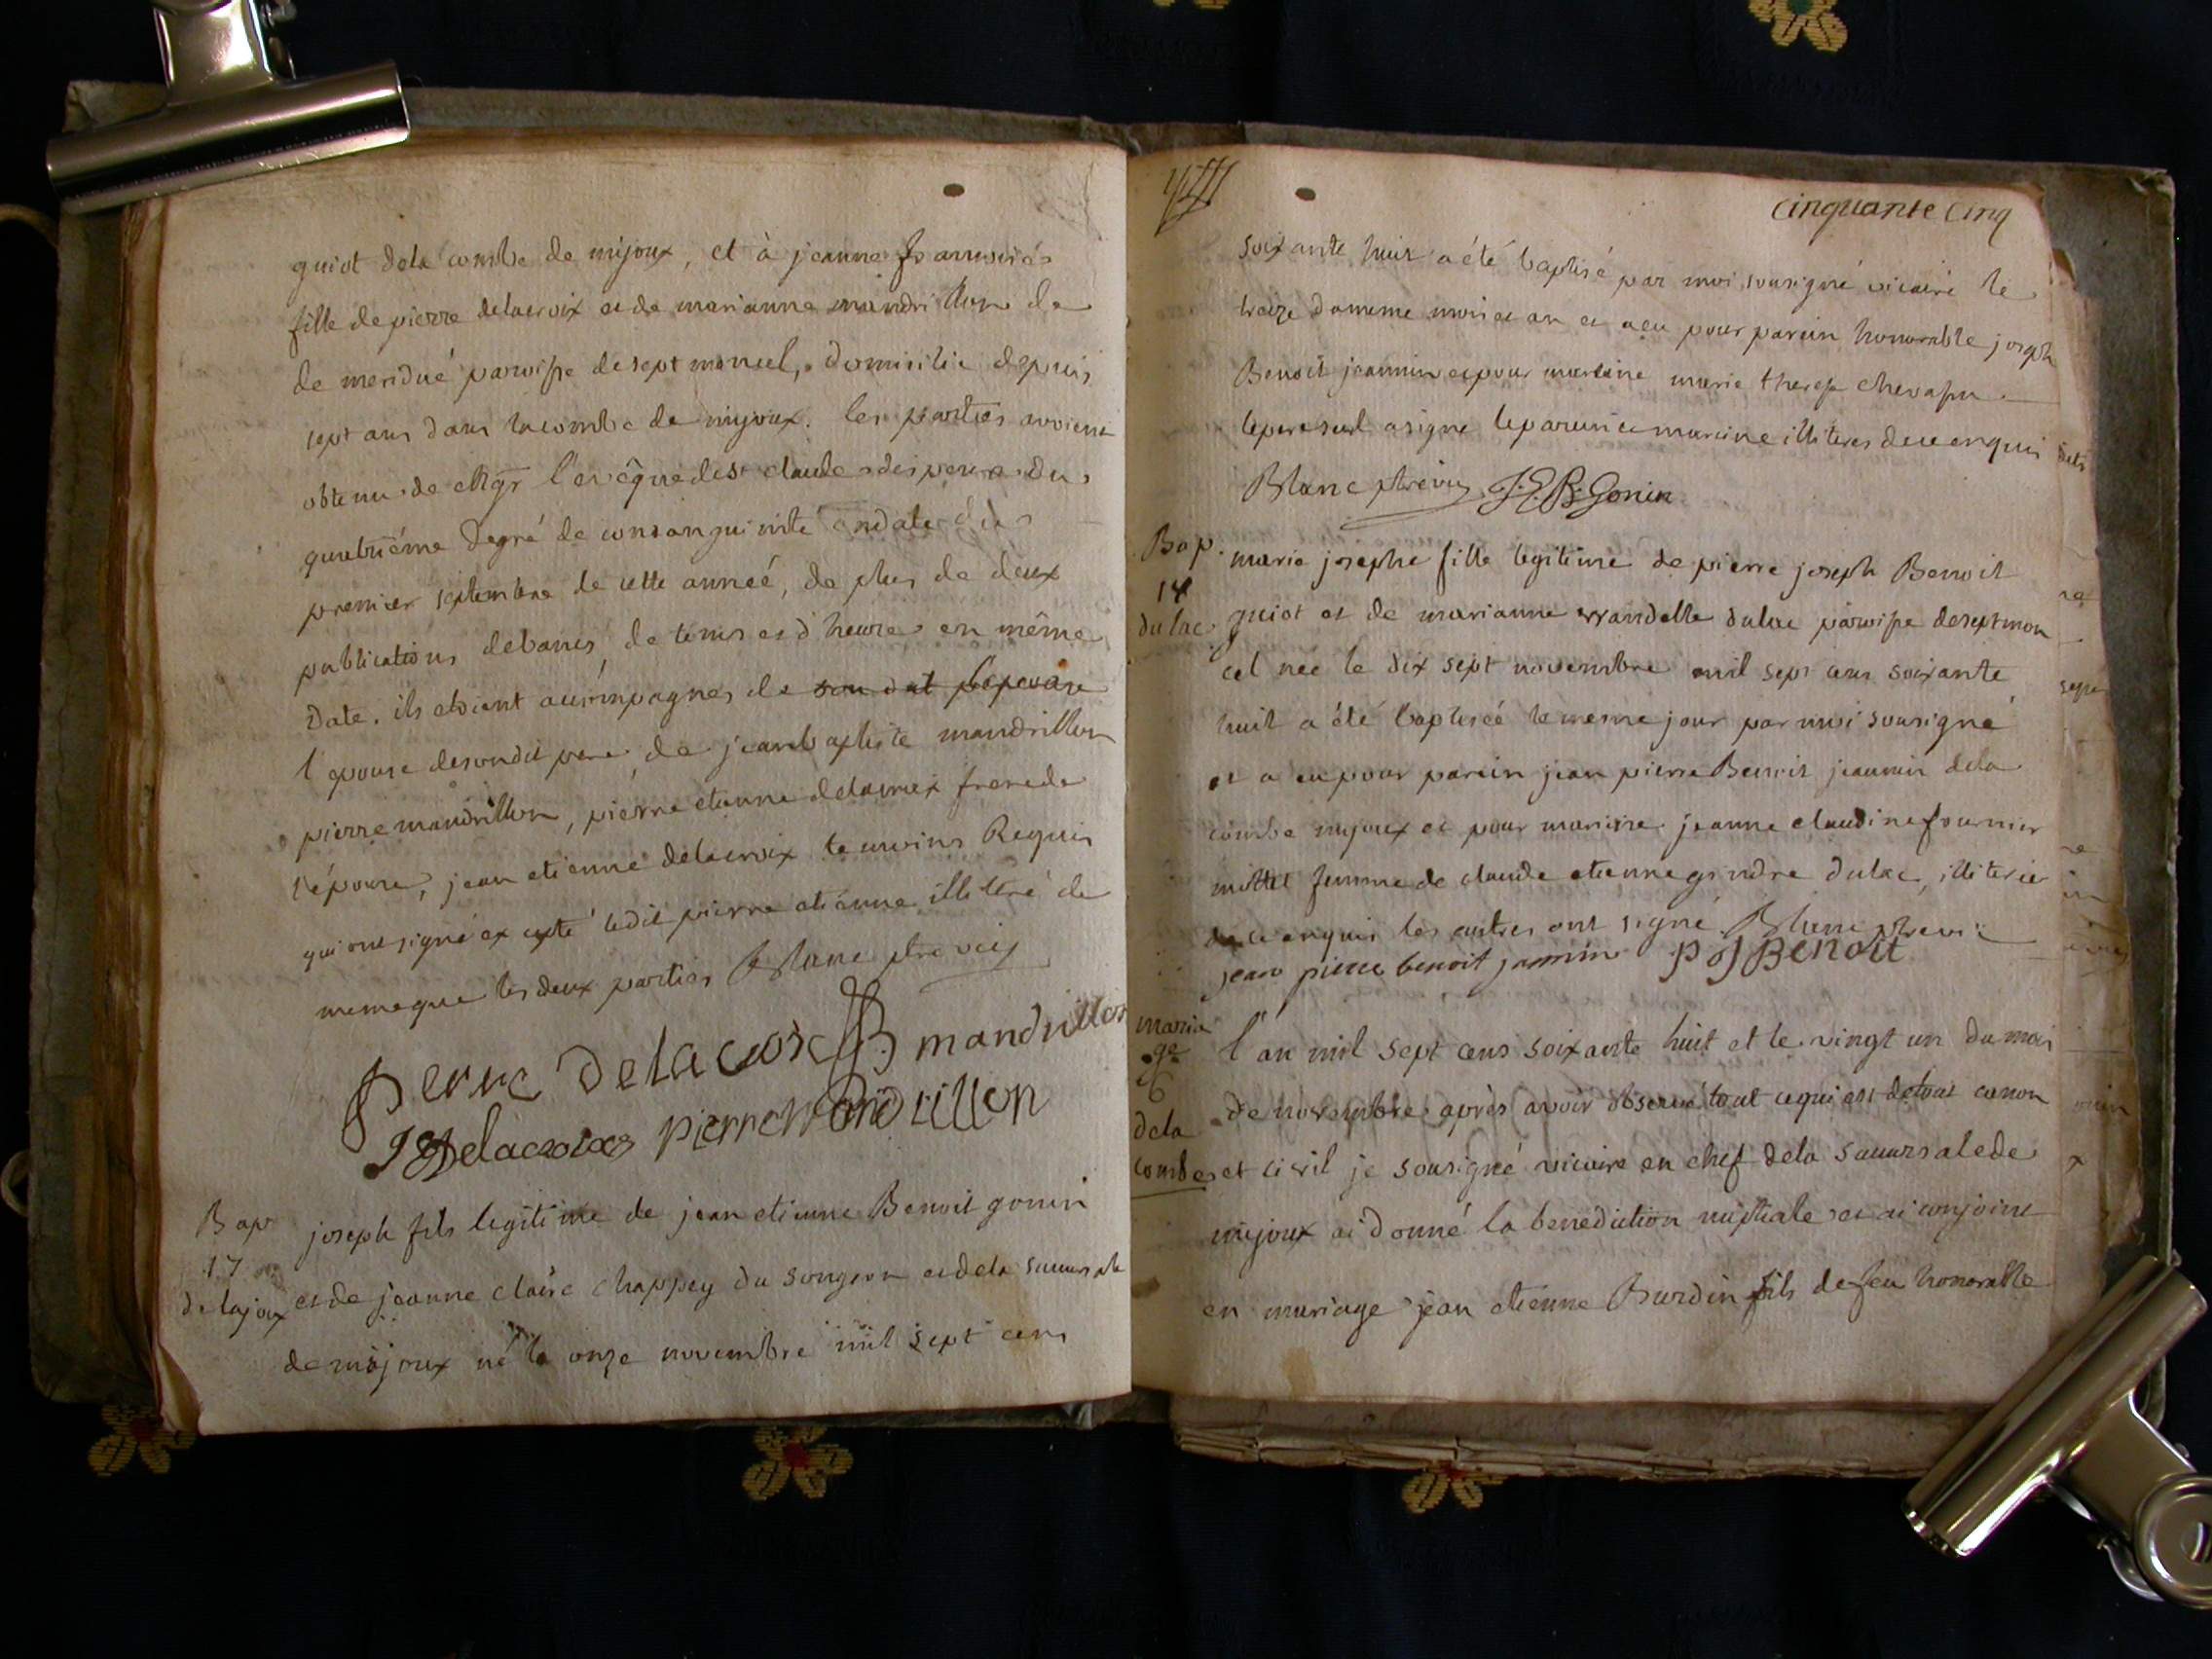 guiot dela combe de mijoux, et à jeanne francoise
fille de pierre delacroix et de marianne mandrillon de
de meridué paroisse de sept moncel, domicilié depuis
sept ans dans la combe de mijoux. les parties avoient
obtenu de Mgr l'evêque de st claude dispense du
quatriéme degré de consanguinité en date du
premier septembre de cette anneé, de plus de deux
publications de bancs, de tems et d'heure en même
date. ils etoient accompagnes de son dit
l'epouse de son dit pere, de jean baptiste mandrillon
pierre mandrillon, pierre etienne delacroix frere de
l'épouse, jean etienne delacroix temoins Requis
qui ont signé excepté ledit pierre etienne illiteré de
meme que les deux parties Blanc ptre vic
Pierre Delacroix JB mandrillon
JE delacroix pierre mandrillon
Bap
17
de lajoux
joseph fils legitime de jean etienne Benoit gonin
et de jeanne claire chappey du songeon et dela succursale
de mijoux né le onze novembre mil sept cens
cinquante cinq
soixante huit a été baptisé par moi sousigné vicaire le
treize du meme mois et an et a eu pour parein honorable joseph
Benoit jeannin et pour mareine marie therese chevassu
le pere seul a signé le parein et mareine illiteres de ce enquis
Blanc ptre vic J.E.B. Gonin
Bap.
18
du lac
marie josephe fille legitime de pierre joseph Benoit
guiot et de marianne grandelle du lac paroisse de septmon
cel neé le dix sept novembre mil sept cens soixante
huit a été baptiseé le mesme jour par moi sousigné
et a eu pour parein jean pierre Benoit jeannin dela
combe mijoux et pour mareine jeanne claudine fournier
mottet femme de claude etienne grndre du lac, illiteres
de ce enquis les autres ont signé Blanc ptre vic
jean pierre benoit jannin P J Benoit
maria
ge
6
dela
combe
l'an mil sept cens soixante huit et le vingt un du mois
de novembre après avoir observé tout ce qui est de droit canon
et civil je sousigné vicaire en chef dela succursale de
mijoux ai donné la benediction nuptiale et ai conjoint
en mariage jean etienne Burdin fils de feu honorable